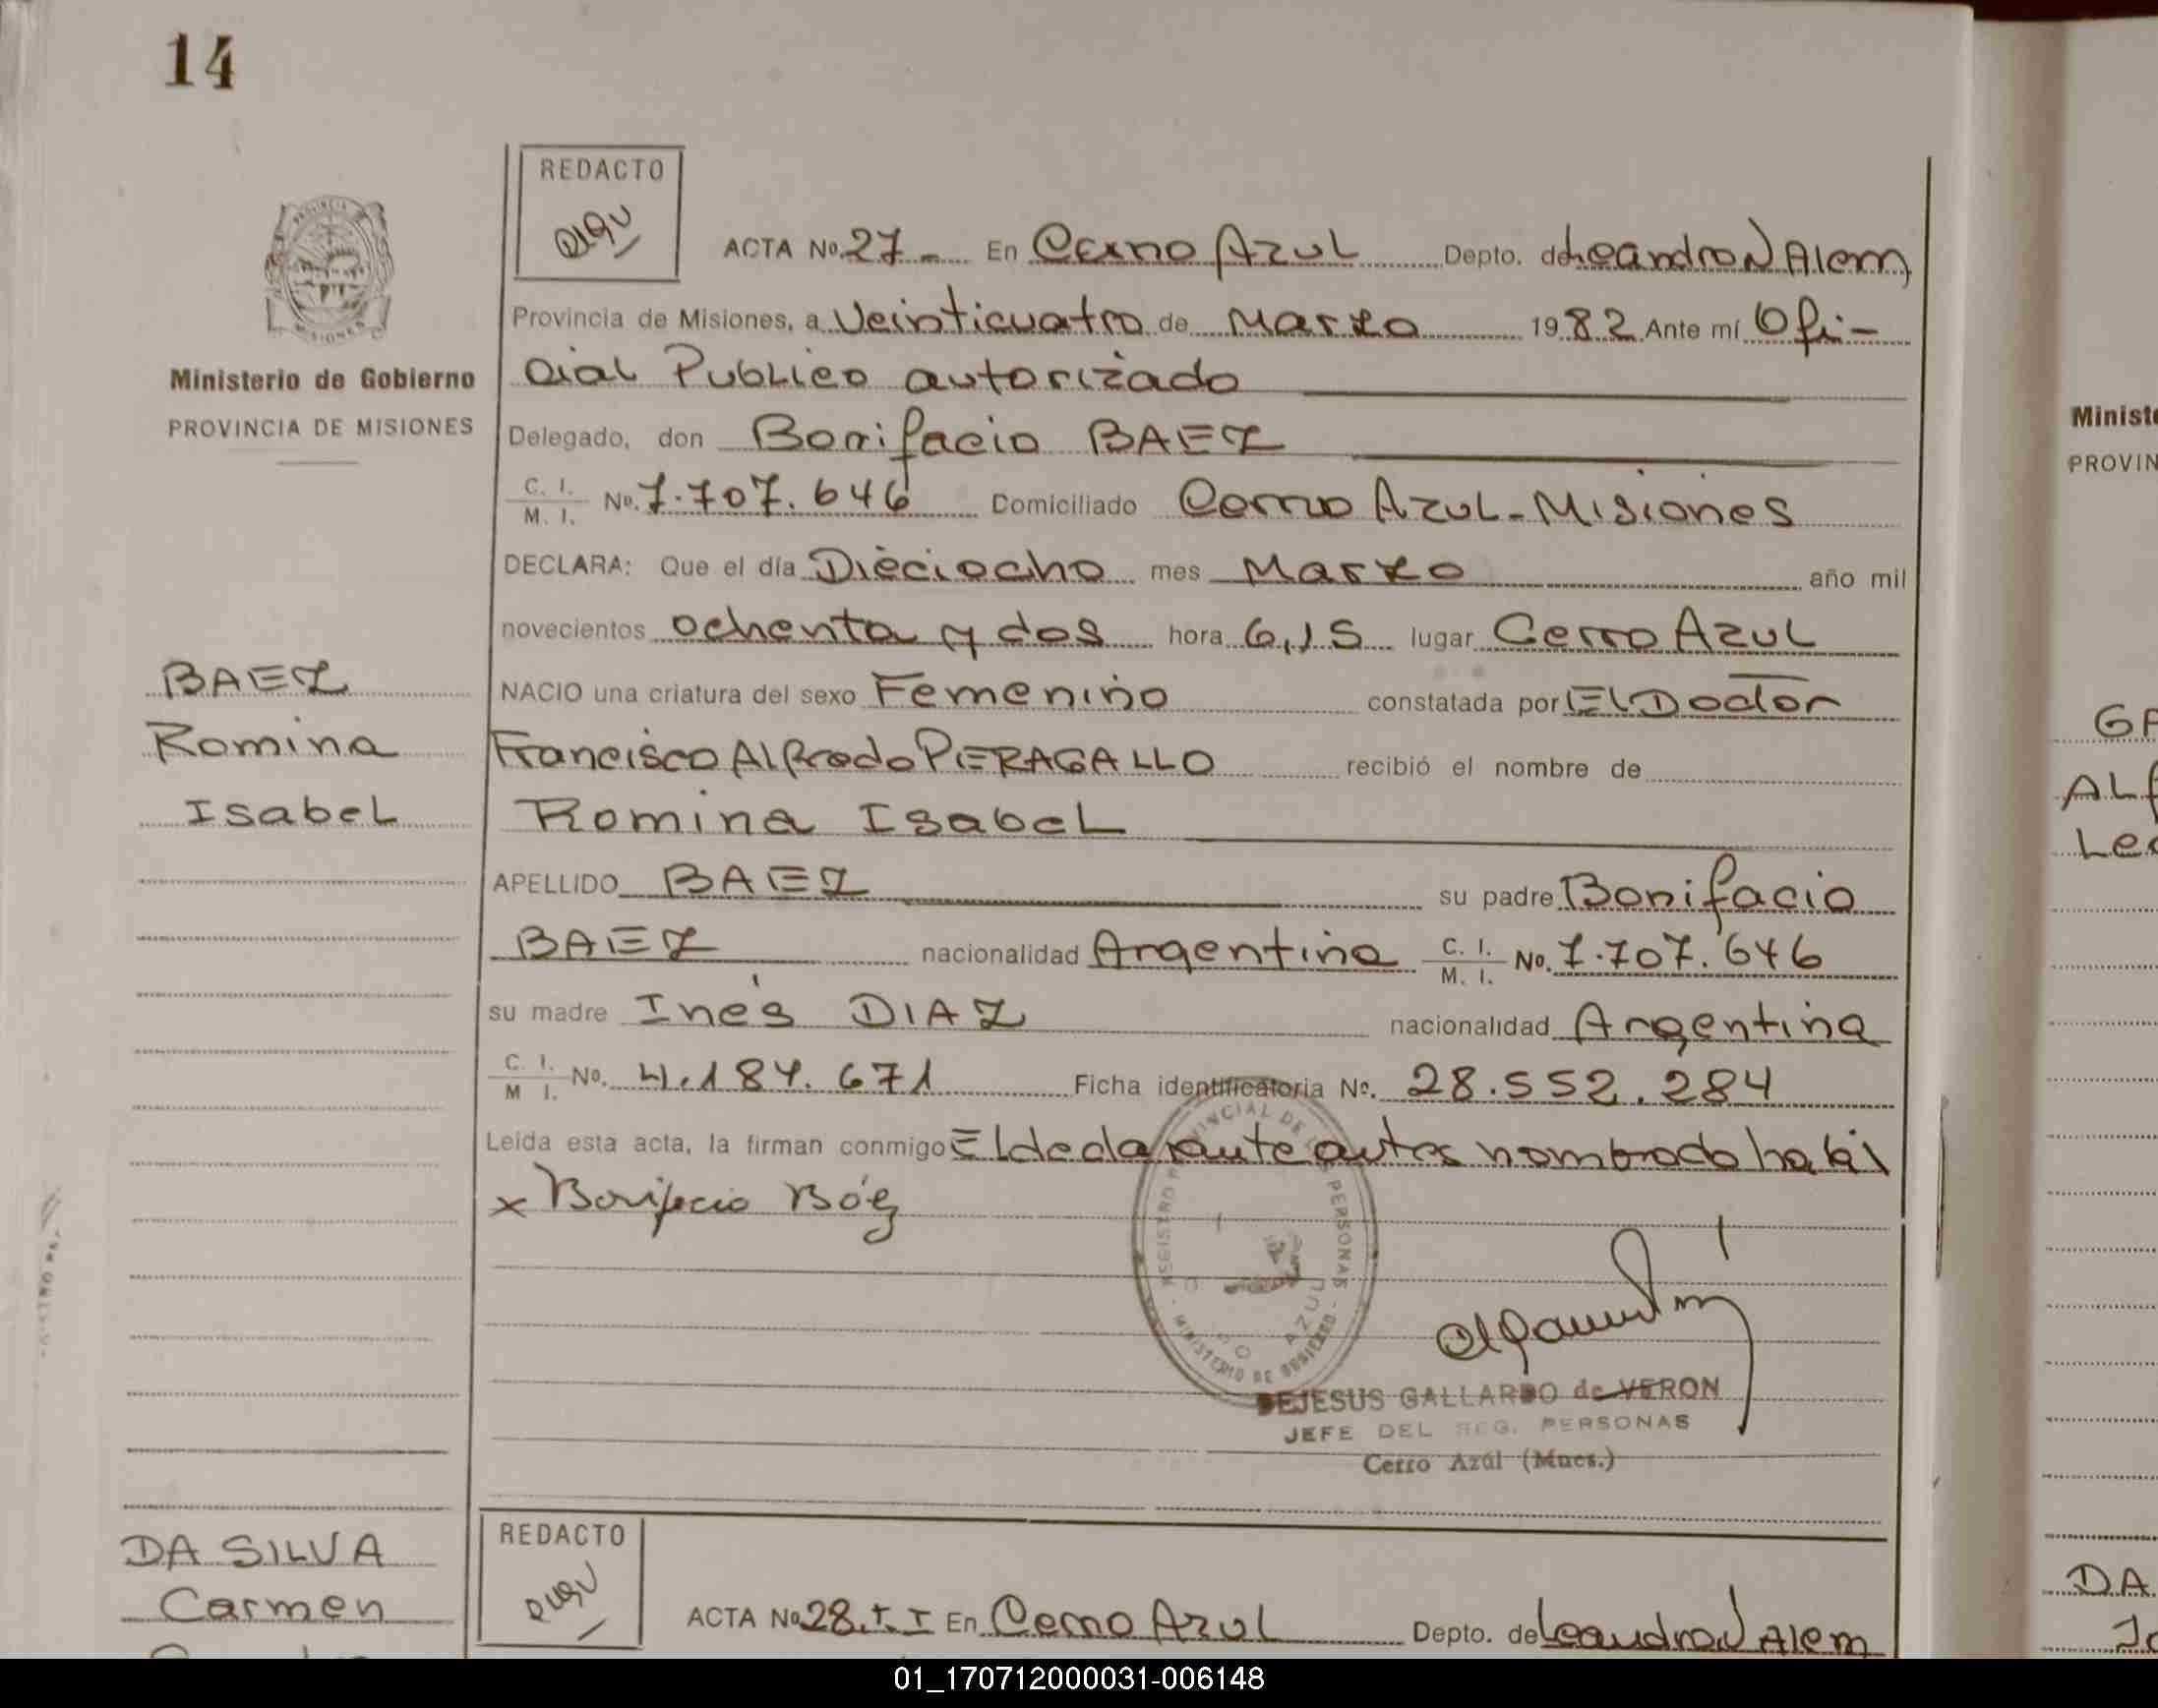 14
REDACTO
ACTA No. 27 - En Cerro Azul Depto. de Leandro N Alem
Provincia de Misiones, a Veinticuatro de Marzo 1982 Ante mí Ofi-
cial Publico autorizado
Ministerio de Gobierno
PROVINCIA DE MISIONES
Delegado, don Bonifacio BAEZ
C. I.
M. I. No. 7.707.646 Domiciliado Cerro Azul - Misiones
DECLARA: Que el día Dieciocho mes Marzo año mil
novecientos ochenta y dos hora 6,15 lugar Cerro Azul
BAEZ
Romina
Isabel
NACIO una criatura del sexo Femenino constatada por El Doctor
Francisco Alfredo PIERAGALLO recibió el nombre de
Romina Isabel
APELLIDO BAEZ su padre Bonifacio
BAEZ nacionalidad Argentina C. I. M. I. No. 7.707.646
su madre Inés DIAZ nacionalidad Argentina
C. I. M I. No. 4.184.671 Ficha identificatoria No. 28.552.284
Leída esta acta, la firman conmigo El declarante antes nombrado habil
x Bonifacio Báez
REGISTRO PROVINCIAL DE PERSONAS - MINISTERIO DE GOBIERNO
AZUL
DEJESUS GALLARDO de VERON
JEFE DEL REG. PERSONAS
Cerro Azúl (Mnes.)
DA SILVA
Carmen
REDACTO
ACTA No 28. I. I En Cerro Azul Depto. de Leandro N Alem
Minist
PROVIN
GA
ALf
Le
DA
01_170712000031-006148